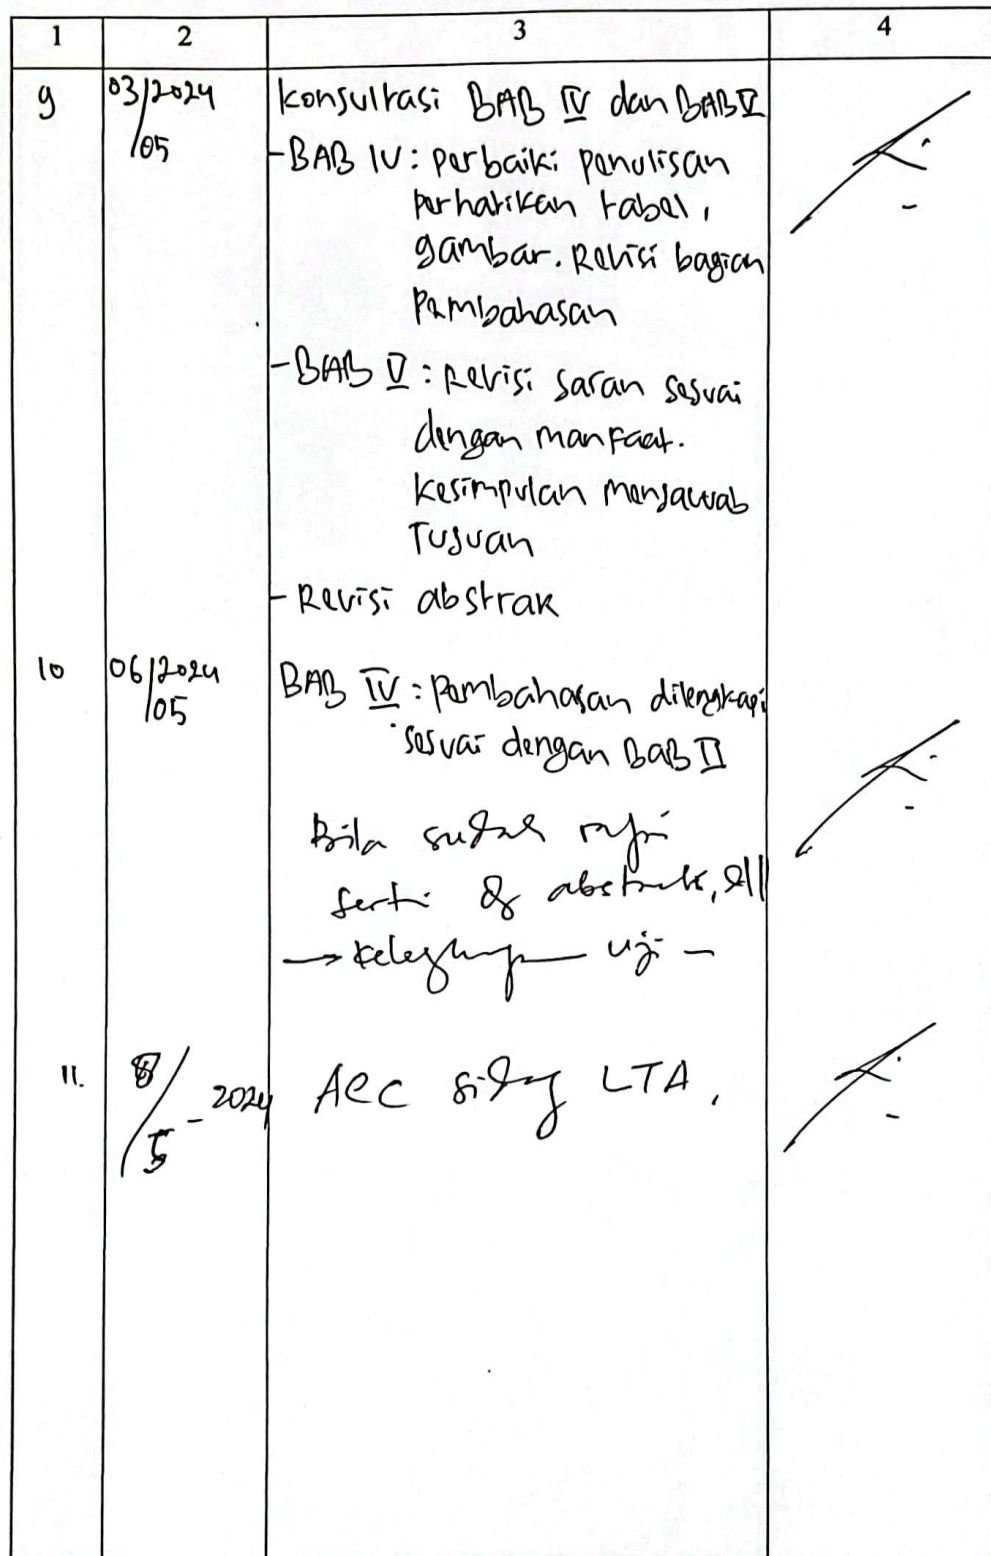 1 2 3 4
9 03/2024 Konsultasi BAB IV dan BAB V
/05 -BAB IV : perbaiki penulisan
perhatikan tabel,
gambar. Revisi bagian
Pembahasan
-BAB V : Revisi saran sesuai
dengan manfaat.
Kesimpulan menjawab
Tujuan
- Revisi abstrak
10 06/2024 BAB IV : Pembahasan dilengkapi
/05 sesuai dengan BAB II
Bila sudah rapi
abstrak, dll
→ Kelengkapan uji -
11. 8/5 - 2024 ACC sidang LTA.